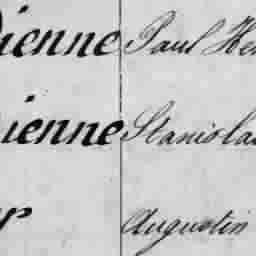 ienne Paul He
ienne Stanisla
r Augustin